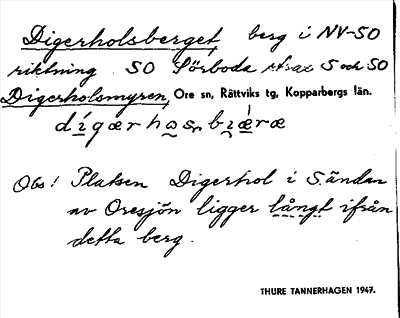 Digerholsberget, berg i NV-SO
riktning SO Sörboda strax S och SO
Digerholmsmyren, Ore sn, Rättviks tg, Kopparbergs län.
Obs! Platsen Digerhol i S. ändan
av Oresjön ligger långt ifrån
detta berg.
THURE TANNERHAGEN 1947.